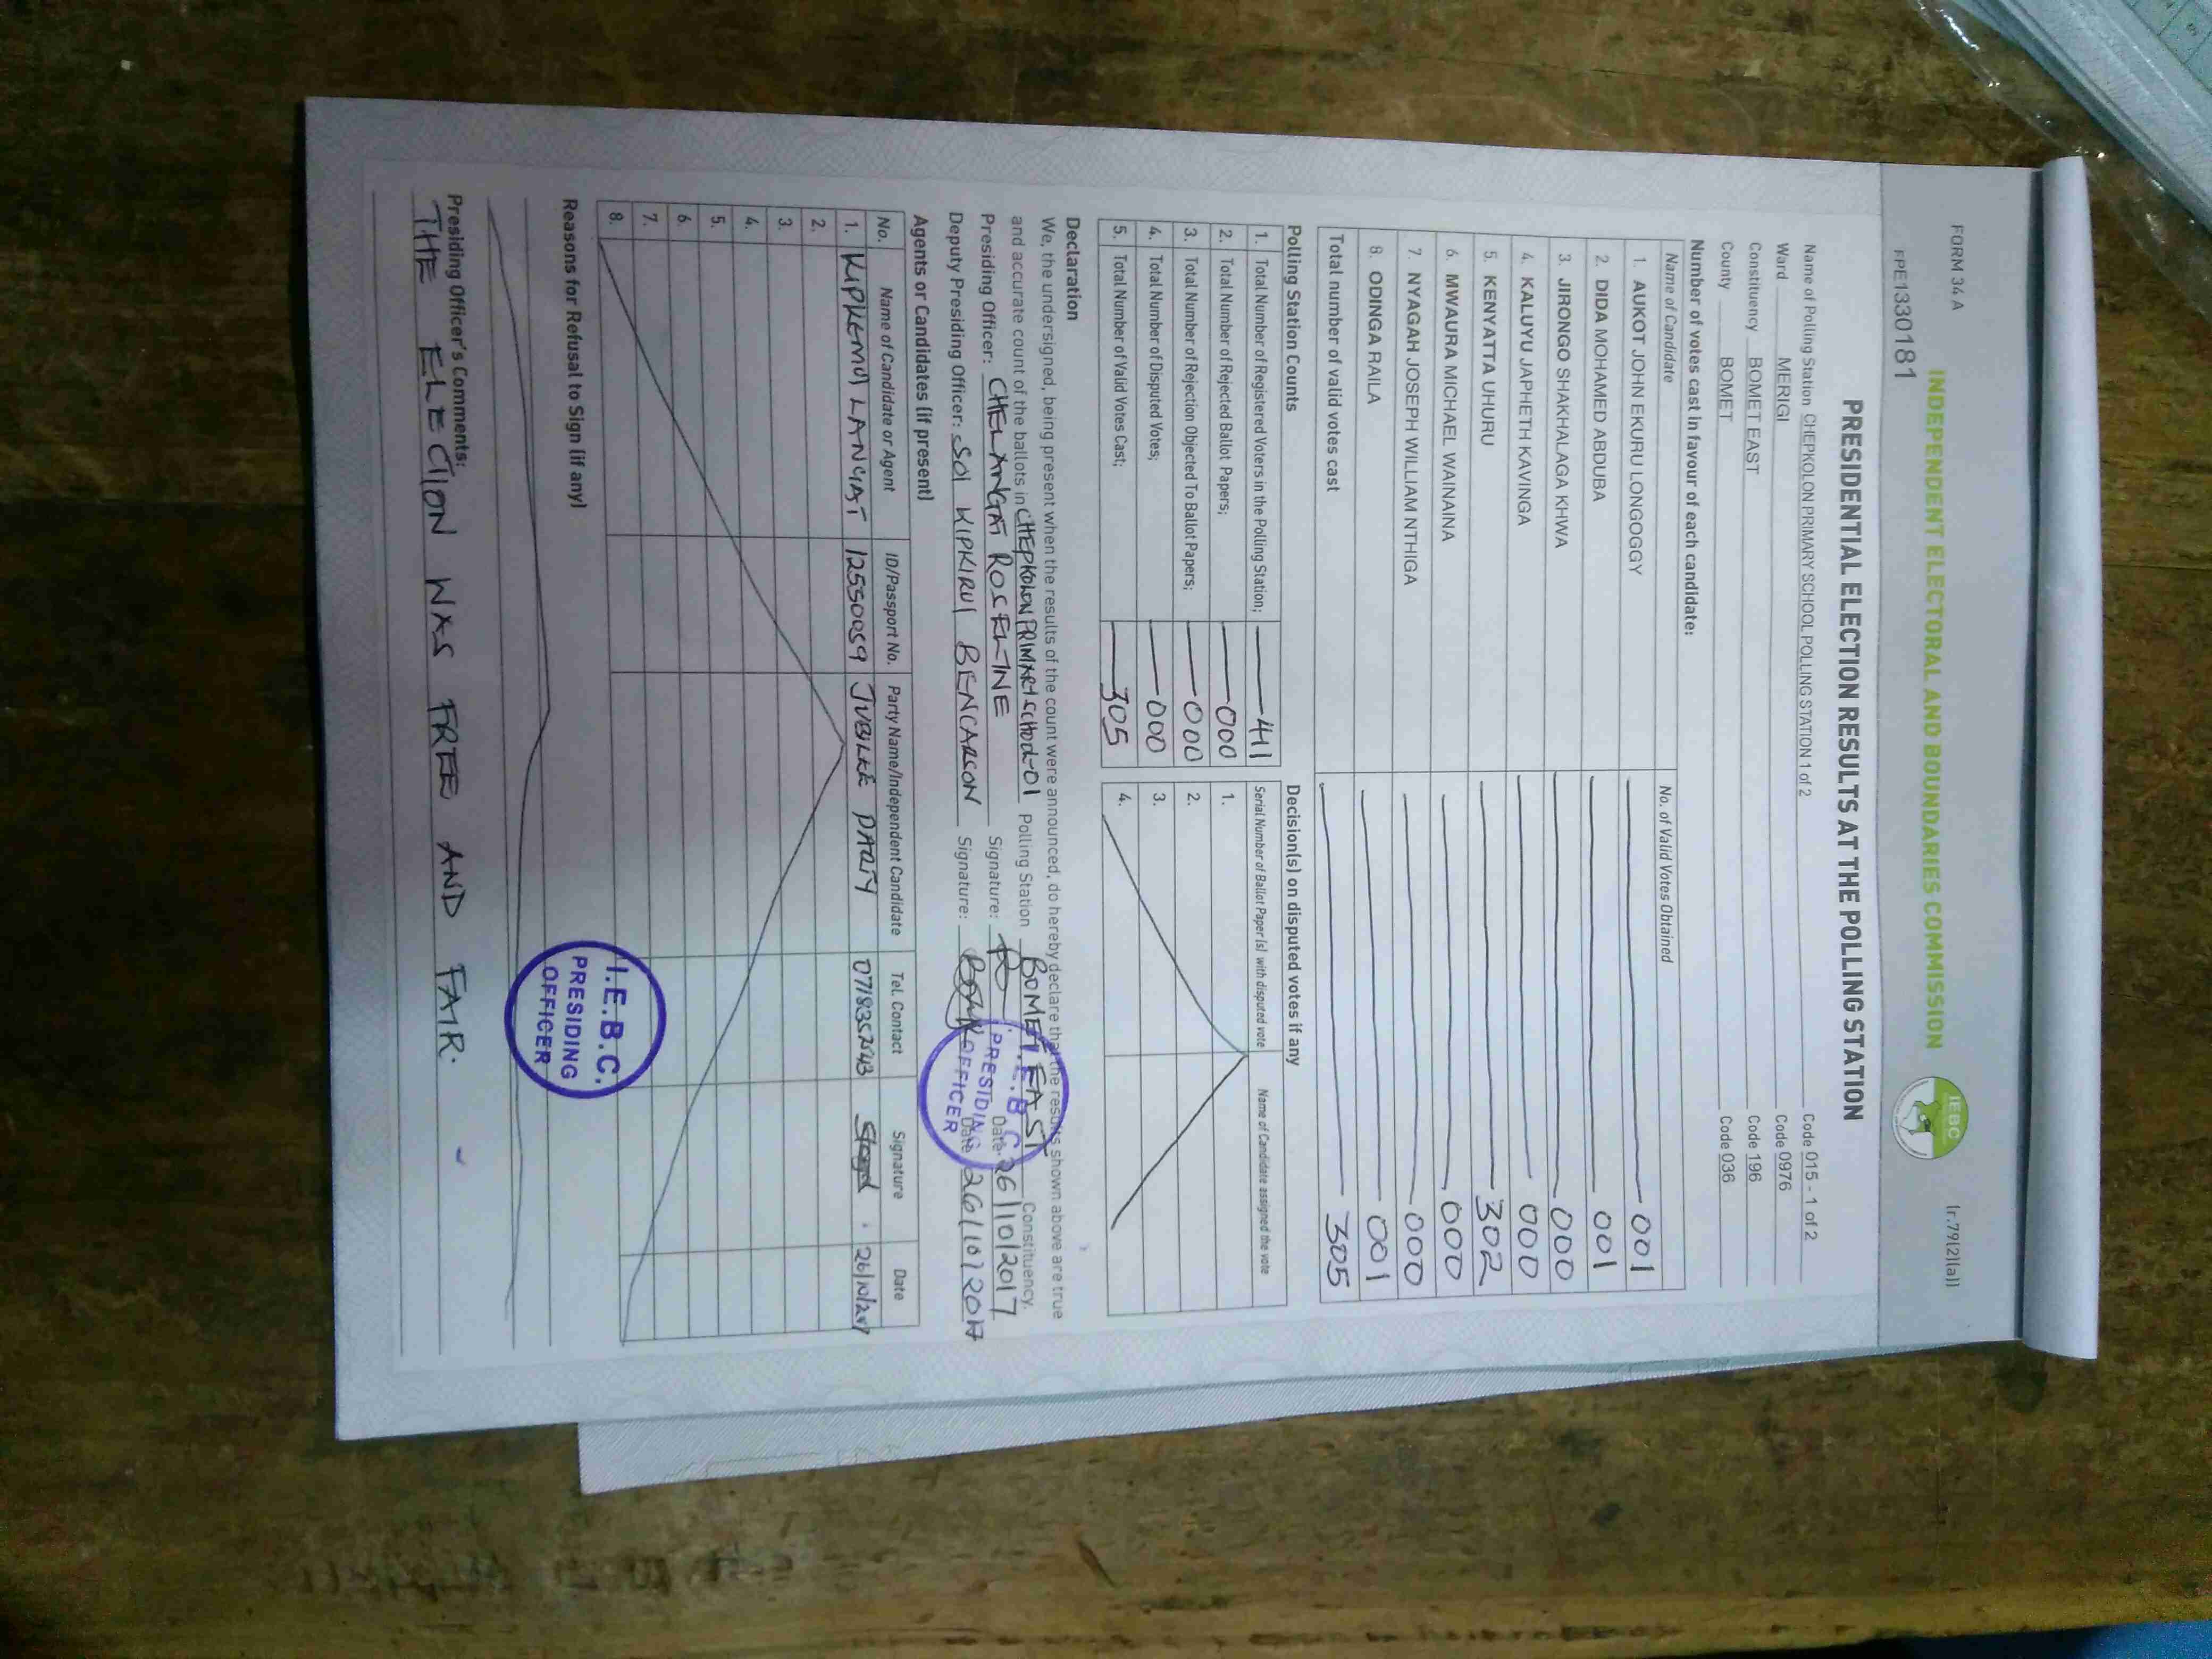 FORM 34 A
(r.79(2)(a))
INDEPENDENT ELECTORAL AND BOUNDARIES COMMISSION
IEBC
FPE1330181
PRESIDENTIAL ELECTION RESULTS AT THE POLLING STATION
Name of Polling Station CHEPKOLON PRIMARY SCHOOL POLLING STATION 1 of 2 Code 015 - 1 of 2
Ward MERIGI Code 0976
Constituency BOMET EAST Code 196
County BOMET Code 036
Number of votes cast in favour of each candidate:
Name of Candidate No. of Valid Votes Obtained
1. AUKOT JOHN EKURU LONGOGGY 001
2. DIDA MOHAMED ABDUBA 001
3. JIRONGO SHAKHALAGA KHWA 000
4. KALUYU JAPHETH KAVINGA 000
5. KENYATTA UHURU 302
6. MWAURA MICHAEL WAINAINA 000
7. NYAGAH JOSEPH WILLIAM NTHIGA 000
8. ODINGA RAILA 001
Total number of valid votes cast 305
Polling Station Counts
1. Total Number of Registered Voters in the Polling Station; 411
2. Total Number of Rejected Ballot Papers; 000
3. Total Number of Rejection Objected To Ballot Papers; 000
4. Total Number of Disputed Votes; 000
5. Total Number of Valid Votes Cast; 305
Decision(s) on disputed votes if any
Serial Number of Ballot Paper (s) with disputed vote Name of Candidate assigned the vote
1.
2.
3.
4.
Declaration
We, the undersigned, being present when the results of the count were announced, do hereby declare that the results shown above are true
and accurate count of the ballots in CHEPKOLON PRIMARY SCHOOL-01 Polling Station BOMET EAST Constituency.
Presiding Officer: CHELANGAT ROSELINE Signature: Date: 26/10/2017
Deputy Presiding Officer: SOI KIPKIRUI BENCARSON Signature: Date 26/10/2017
I.E.B.C.
PRESIDING
OFFICER
Agents or Candidates (if present)
No. Name of Candidate or Agent ID/Passport No. Party Name/Independent Candidate Tel. Contact Signature Date
1. KIPKEMOI LANGAT 12550059 JUBILEE PARTY 0718352543 26/10/2017
2.
3.
4.
5.
6.
7.
8.
I.E.B.C.
PRESIDING
OFFICER
Reasons for Refusal to Sign (if any)
Presiding Officer's Comments:
THE ELECTION WAS FREE AND FAIR.